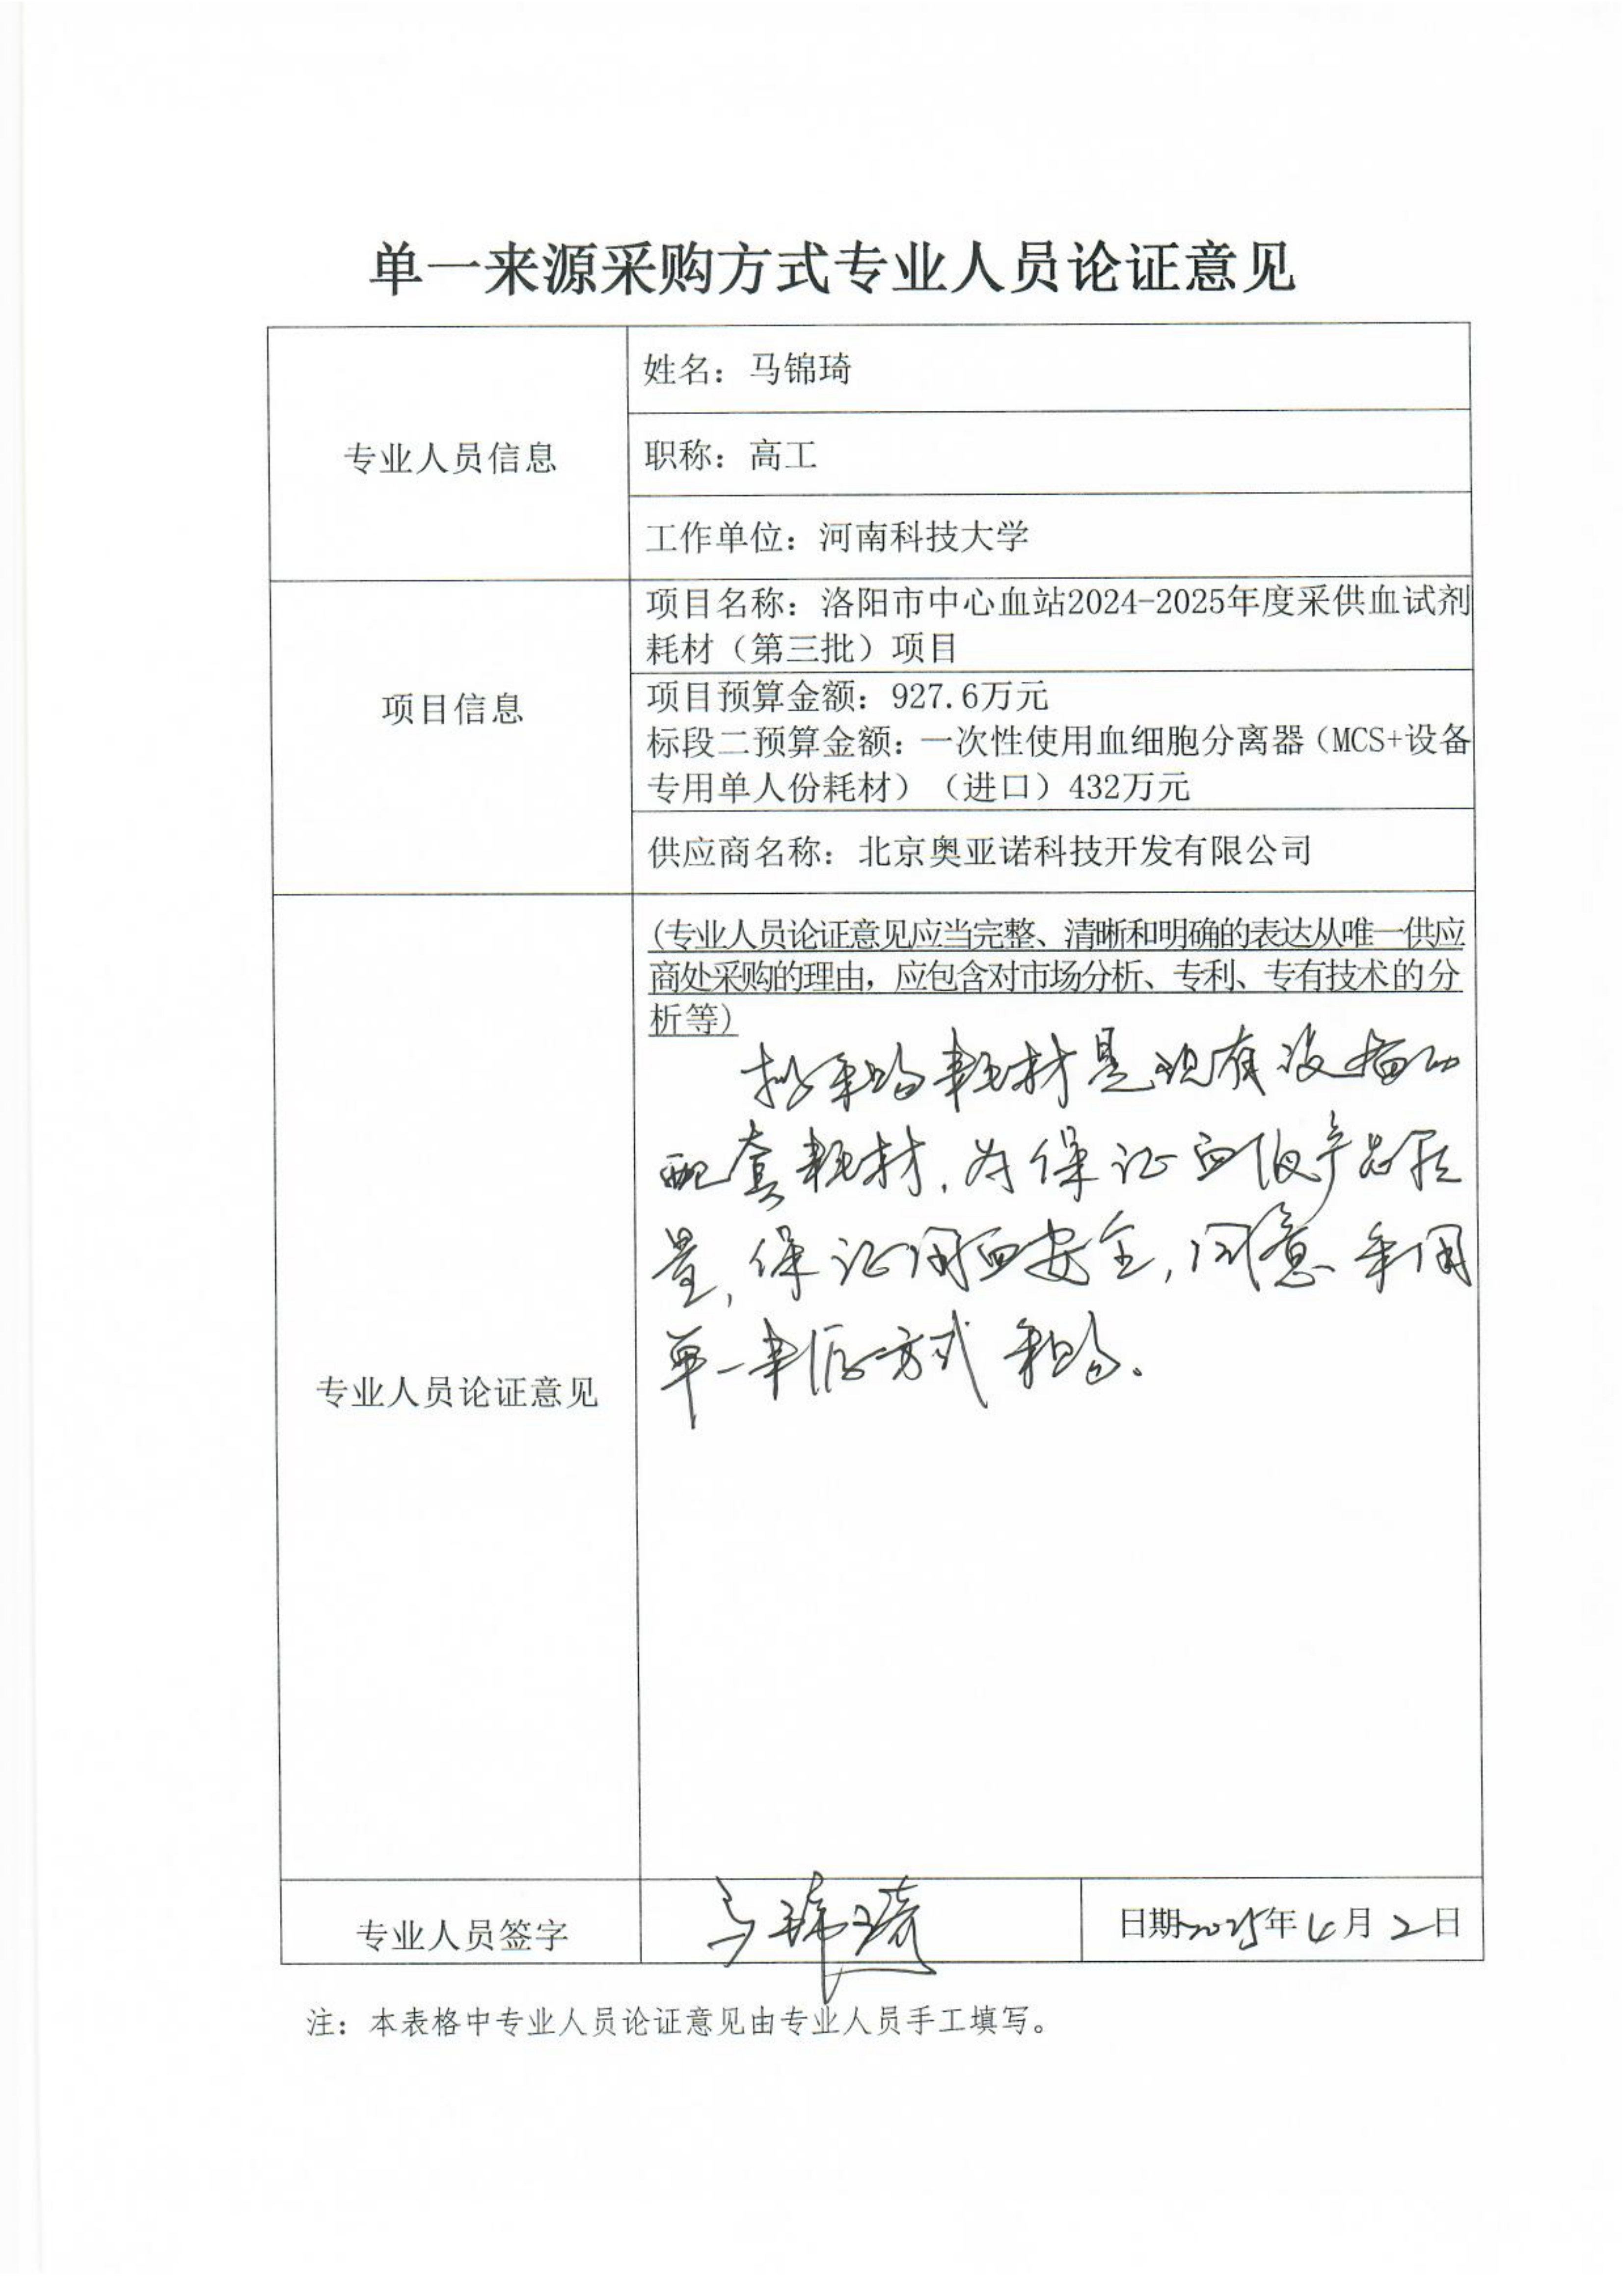 单一来源采购方式专业人员论证意见
专业人员信息
姓名：马锦琦
职称：高工
工作单位：河南科技大学
项目信息
项目名称：洛阳市中心血站2024-2025年度采供血试剂
耗材（第三批）项目
项目预算金额：927.6万元
标段二预算金额：一次性使用血细胞分离器（MCS+设备
专用单人份耗材）（进口）432万元
供应商名称：北京奥亚诺科技开发有限公司
专业人员论证意见
(专业人员论证意见应当完整、清晰和明确的表达从唯一供应
商处采购的理由，应包含对市场分析、专利、专有技术的分
析等)
拟采购耗材是现有设备的
配套耗材，为保证血液产品质
量，保证用血安全，同意采用
单一来源方式采购。
专业人员签字
马锦琦
日期2025年4月2日
注：本表格中专业人员论证意见由专业人员手工填写。